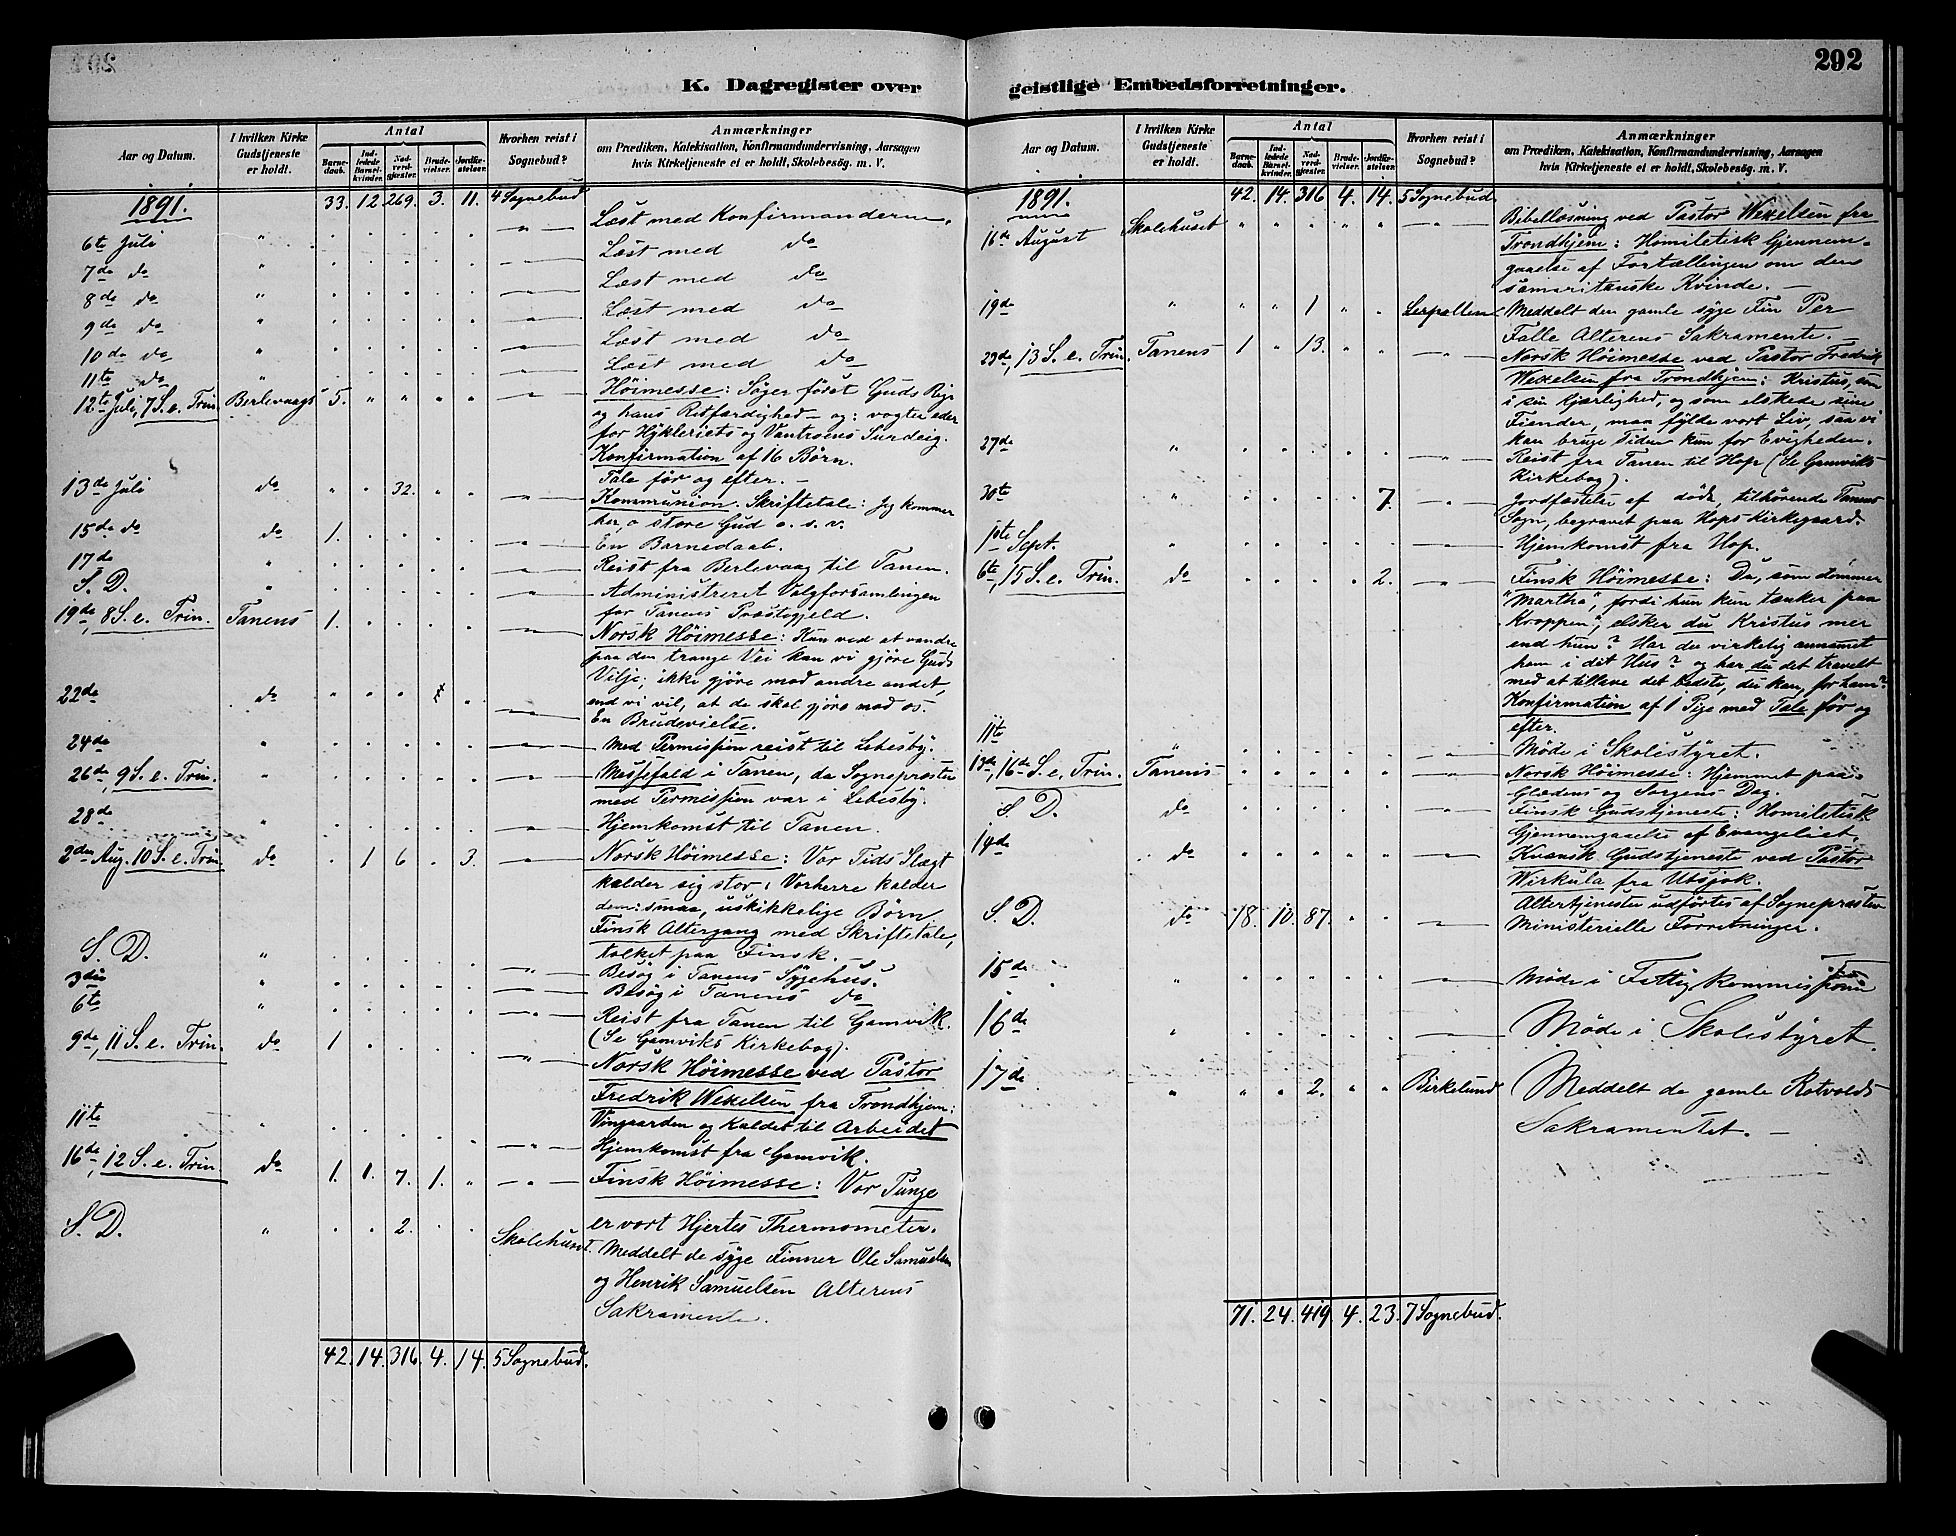 292
K. Dagregister over
Aar og Datum.
I hvilken Kirke Gudstjeneste er holdt.
Antal
Barnedaab.
Indledede Barselkvinder.
Nadverdgjæster.
Brudevielser.
Jordfæstelser.
Hvorhen reist i Sognebud?
Anmærkninger
om Prædiken, Katekisation, Konfirmandundervisning, Aarsagen
hvis Kirketjeneste ei er holdt, Skolebesøg. m. V.
1891. 33. 12 269. 3. 11. 4 Sognebud
6te Juli " Læst med Konfirmanderne.
7de do " Læst med do
8de do " Læst med do
9de do " Læst med do
10de do " Læst med do
11te do " Læst med do
12te Juli, 7 S. e. Trin. Berlevaags 5. " " " " Høimesse: Søger først Guds Rige
og hans Retfærdighed – og: vogter eder
for Hykleriets og Vantroens Surdeig.
Konfirmation af 16 Børn.
Tale før og efter. –
13de Juli do " " 32. " " Kommunion. Skriftetale: Jeg kommer
her, o store Gud o. s. v.
15de do do 1. En Barnedaab.
17de " Reist fra Berlevaag til Tanen.
S. D. " Administreret Valgforsamlingen
for Tanens Præstegjeld.
19de, 8 S. e. Trin. Tanens 1. Norsk Høimesse: Kun ved at vandre
paa den trange Vei kan vi gjøre Guds
Vilje; ikke gjøre mod andre andet,
end vi vil, at de skal gjøre mod os.
22de do En Brudevielse.
24de " Med Permission reist til Lebesby.
26de, 9 S. e. Trin. " Messefald i Tanen, da Sognepræsten
med Permission var i Lebesby.
28de " Hjemkomst til Tanen.
2den Aug. 10 S. e. Trin. do 1 6 3. Norsk Høimesse: Vor Tids Slægt
kalder sig stor; Vorherre kalder
dem: smaa, uskikkelige Børn
Finsk Altergang med Skriftetale,
tolket paa Finsk. –
S. D. " Besøg i Tanens Sygehus.
3die " Besøg i Tanens do
6te " Reist fra Tanen til Gamvik.
(Se Gamviks Kirkebog).
9de, 11 S. e. Trin. do 1 Norsk Høimesse ved Pastor
Fredrik Wexelsen fra Trondhjem:
Vingaarden og Kaldet til Arbeidet
11te " Hjemkomst fra Gamvik.
16de, 12 S. e. Trin. do 1. 1. 7. 1. " Finsk Høimesse: Vor Tunge
er vort Hjertes Thermometer.
S. D. " 2. Skolehuset. Meddelt de syge Finner Ole Samuelsen
og Henrik Samuelsen Alterens
Sakramente.
42. 14. 316. 4. 14. 5 Sognebud.
geistlige Embedsforretninger.
292
Aar og Datum.
I hvilken Kirke Gudstjeneste er holdt.
Antal
Barnedaab.
Indledede Barselkvinder.
Nadverdgjæster.
Brudevielser.
Jordfæstelser.
Hvorhen reist i Sognebud?
Anmærkninger
om Prædiken, Katekisation, Konfirmandundervisning, Aarsagen
hvis Kirketjeneste ei er holdt, Skolebesøg. m. V.
1891. 42. 14. 316 4. 14. 5 Sognebud.
16de August Skolehuset " " " " " Bibellæsning ved Pastor Wexelsen fra
Trondhjem: Homiletisk Gjennem-
gaaelse af Fortællingen om den
samaritanske Kvinde. –
19de " " " 1 " " Meddelt den gamle syge Fin Per
Falle Alterens Sakramente. –
23de, 13 S. e. Trin. Tanens 1 " 13. " " Norsk Høimesse ved Pastor Fredrik
Wexelsen fra Trondhjem: Kristus, som
i sin Kjærlighed, og som elskede sine
Fiender, maa fylde vort Liv, saa vi
kan bruge Tiden kun for Evigheden.
27de " Reist fra Tanen til Hop (Se Gamviks
Kirkebog).
30te " 7. Jordfæstelse af døde tilhørende Tanens
Sogn, begravet paa Hops Kirkegaard.
1ste Sept. " Hjemkomst fra Hop.
6te, 15 S. e. Trin. do 2. Finsk Høimesse: Du, som dømmer
"Martha", fordi hun kun tænker paa
Kroppen", elsker du Kristus mer
end hun? Har du virkelig annammet
ham i dit Hus? og har du det travelt
med at tillave det bedste, du kan, for ham?
Konfirmation af 1 Pige med Tale før og
efter.
11te " Møde i Skolestyret.
13de, 16de S. e. Trin. Tanens Norsk Høimesse: Hjemmet paa
Glædens og Sorgens Dag.
S. D. do Finsk Gudstjeneste: Homiletisk
Gjennemgaaelse af Evangeliet.
14de do " " " " " Kvænsk Gudstjeneste ved Pastor
Wirkula fra Utsjok.
Altertjenesten udførtes af Sognepræsten
S. D. do 18. 10. 87. " " Ministerielle Forretninger.
15de " Møde i Fattigkommissionen
16de " Møde i Skolestyret.
17de " " " 2. " " Birkelund Meddelt de gamle Rotvolds
Sakramentet. –
71. 24. 419. 4. 23. 7 Sognebud.